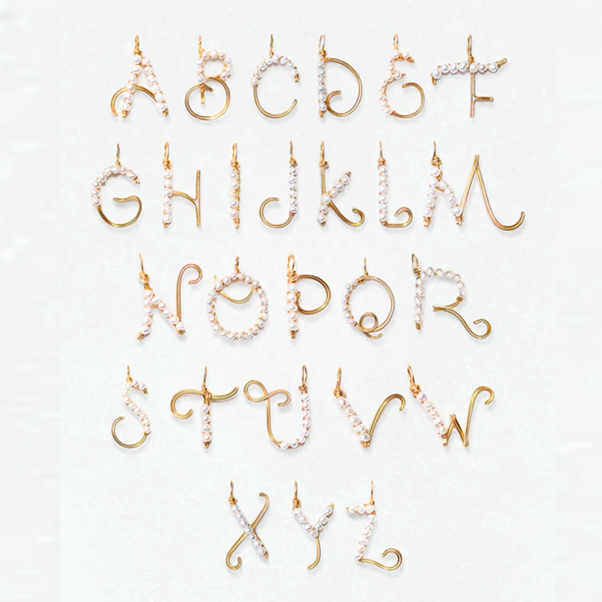 A B C D E F
G H I J K L M
N O P Q R
S T U V W
X Y Z